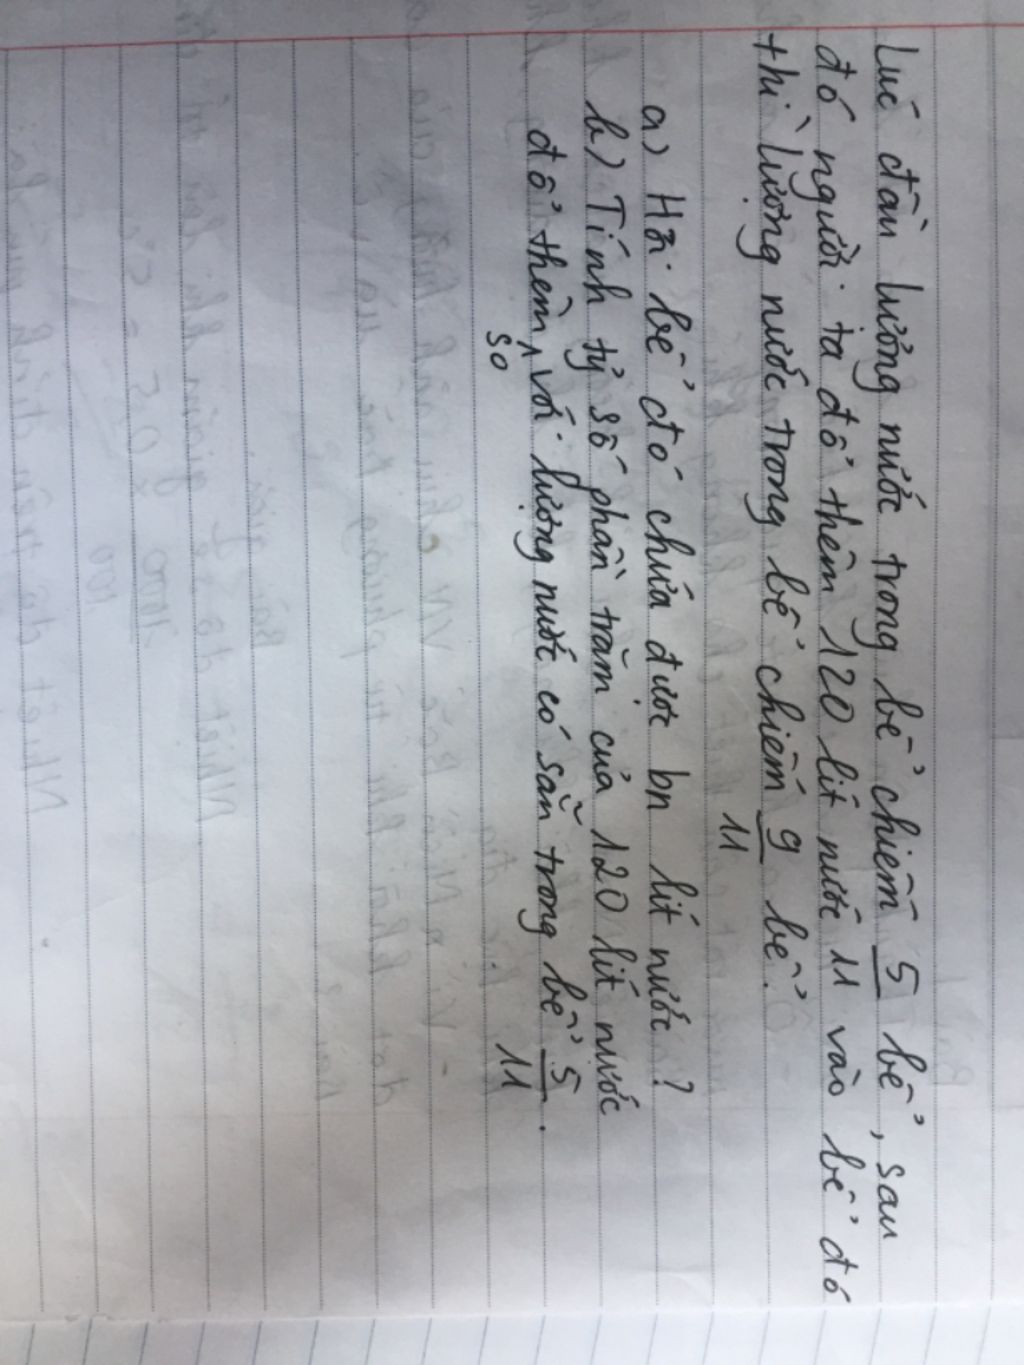 Lúc đầu lượng nước trong bể chiếm 5/11 bể, sau
đó người ta đổ thêm 120 lít nước vào bể đó
thì lượng nước trong bể chiếm 9/11 bể.
a) Hỏi bể đó chứa được bn lít nước?
b) Tính tỷ số phần trăm của 120 lít nước
đổ thêm so với lượng nước có sẵn trong bể 5/11.